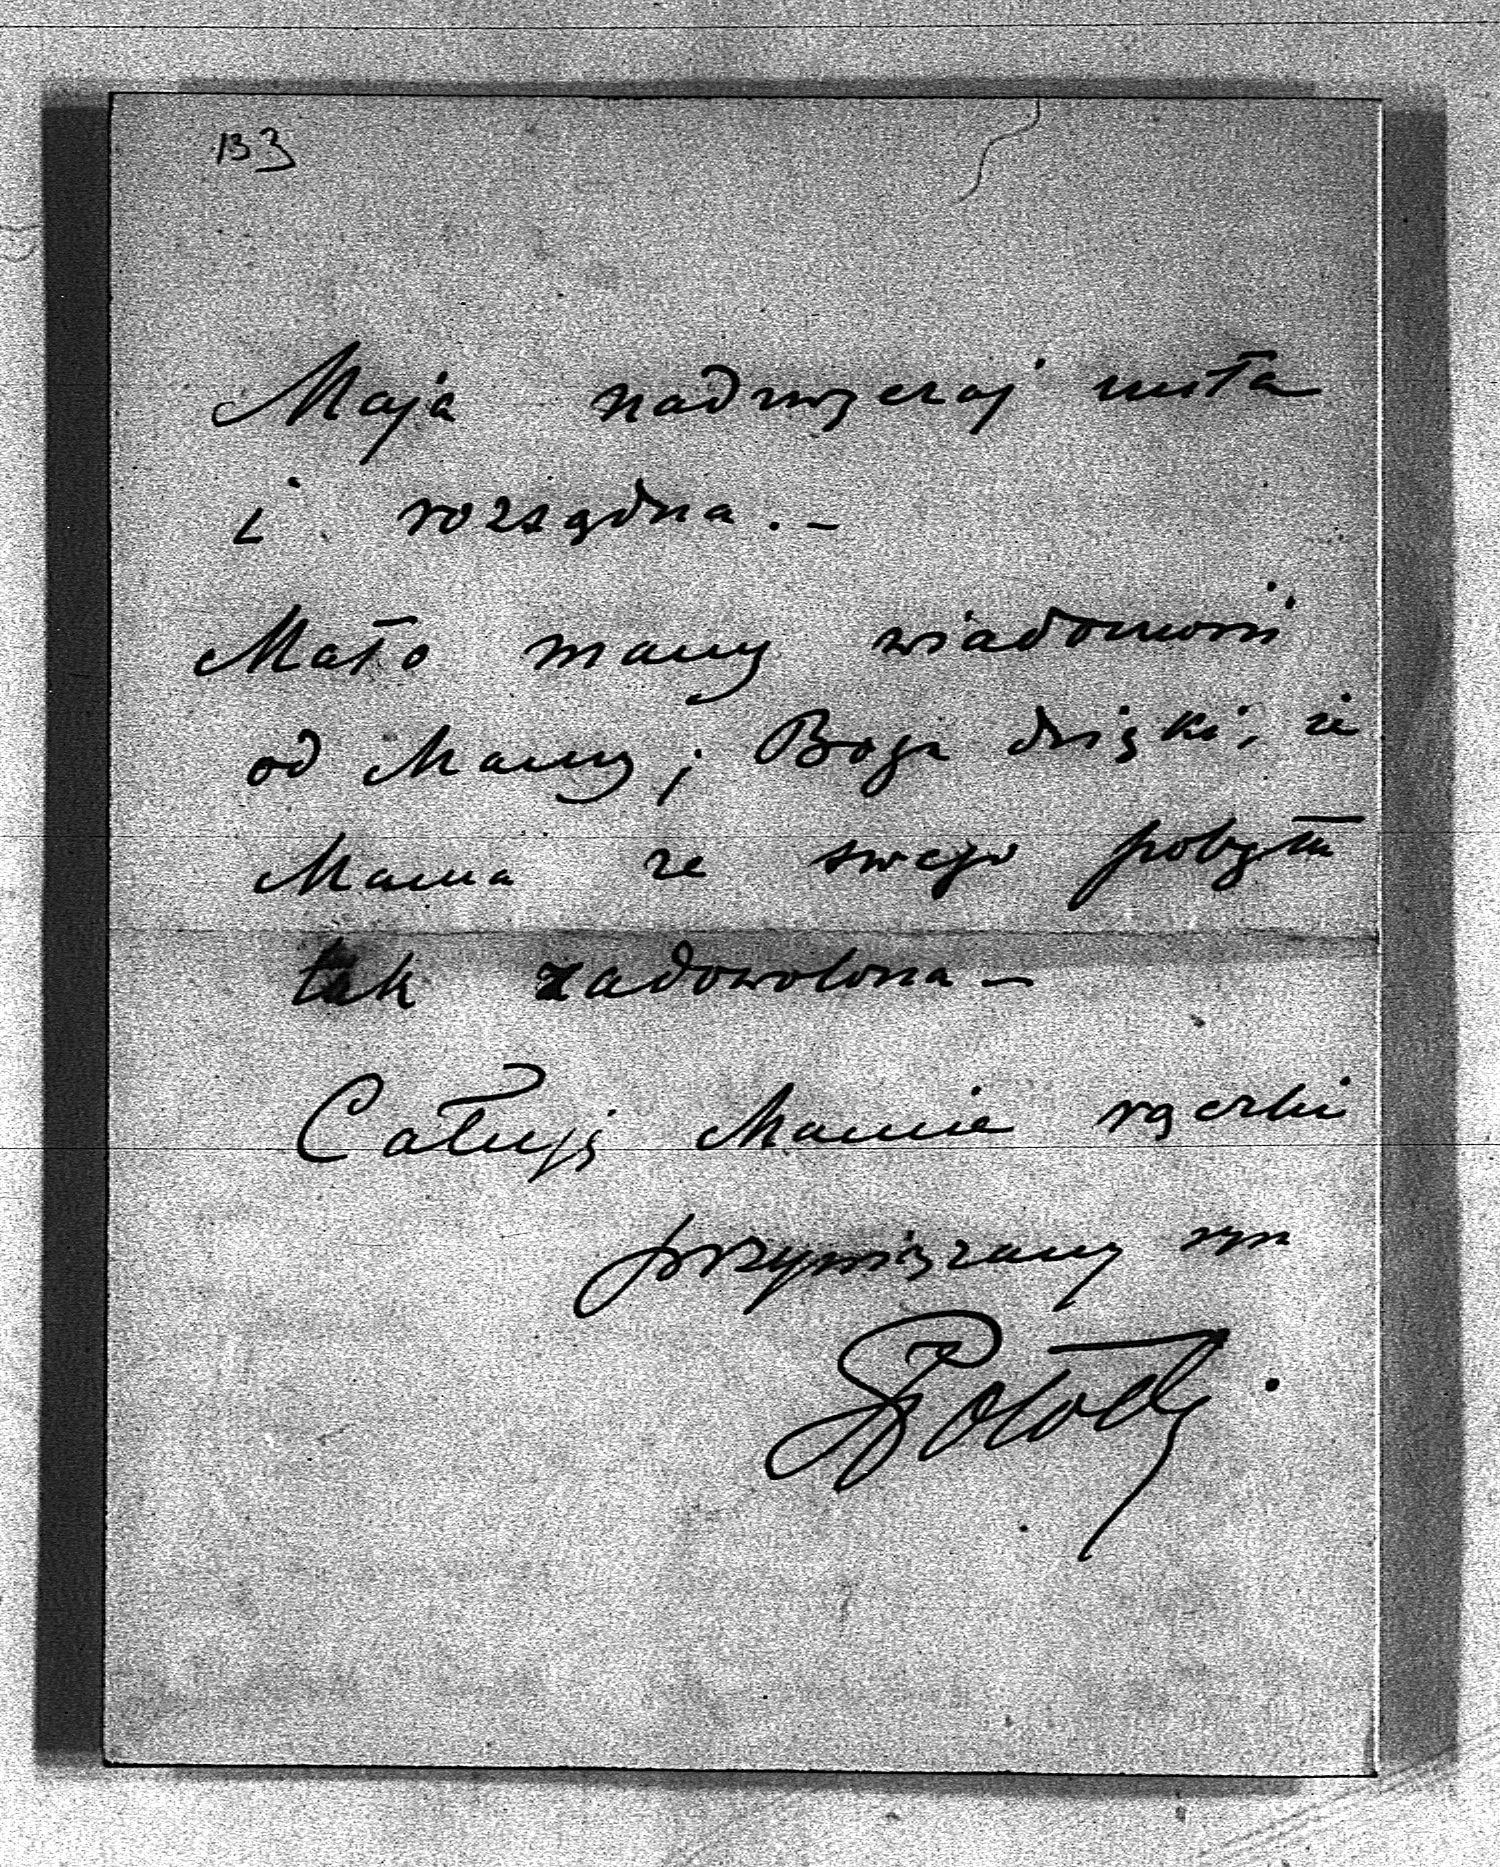 133
Maja nadzwyczaj miła
i rozsądna. –
Mało mamy wiadomości
od Mamy; Bogu dzięki, że
Mama ze swego pobytu
tak zadowolona –
Całuję Mamie rączki
przywiązany syn
RPotocki.